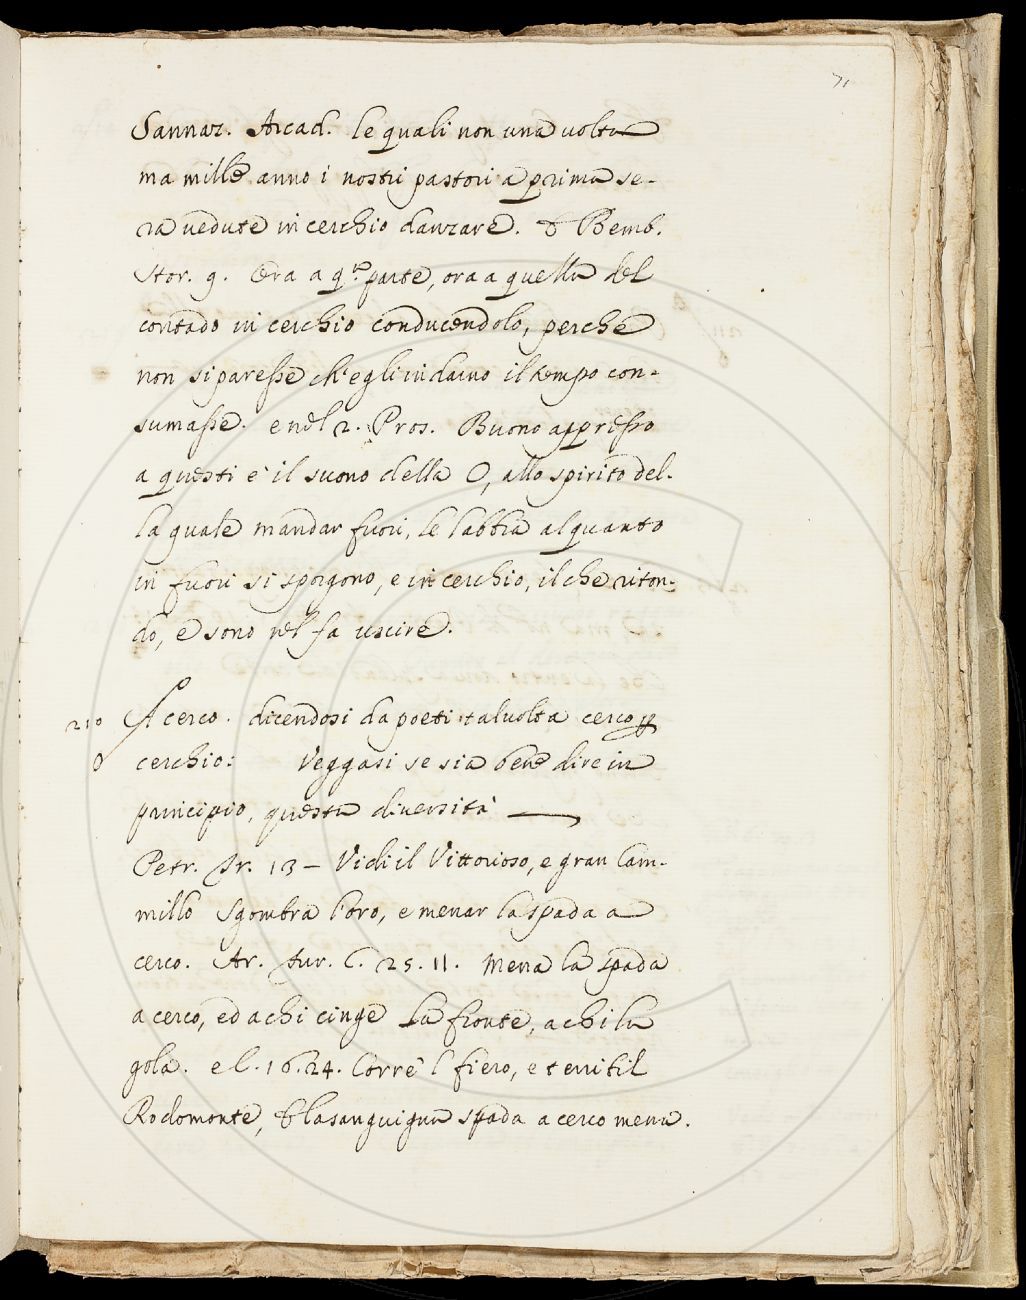 71
Sannaz. Arcad. le quali non una uolta
ma mille anno i nostri pastori a prima se-
ra uedute in cerchio danzare. & Bemb.
Stor. 9. Ora a q.ta parte, ora a quella del
contado in cerchio conducendolo, perche
non si paresse ch'egli indarno il tempo con-
sumasse. e nel 2. Pros. Buono appresso
a questi e' il suono della O, allo spirito del-
la quale mandar fuori, le labbra alquanto
in fuori si sporgono, e in cerchio, il che riton-
do, e sono nel fa uscire.
210 A cerco. dicendosi da poeti talvolta cerco p
cerchio: Veggasi se sia bene dire in
principio, questa diuersità
Petr. Tr. 13 – Vidi il Vittorioso, e gran Cam-
millo Sgombra l'oro, e menar la spada a
cerco. Ar. fur. C. 25. 11. Mena la spada
a cerco, ed a chi cinge La fronte, a chi la
gola. e C. 16. 24. Corre l fiero, e terribil
Rodomonte, & la sanguigna spada a cerco mena.